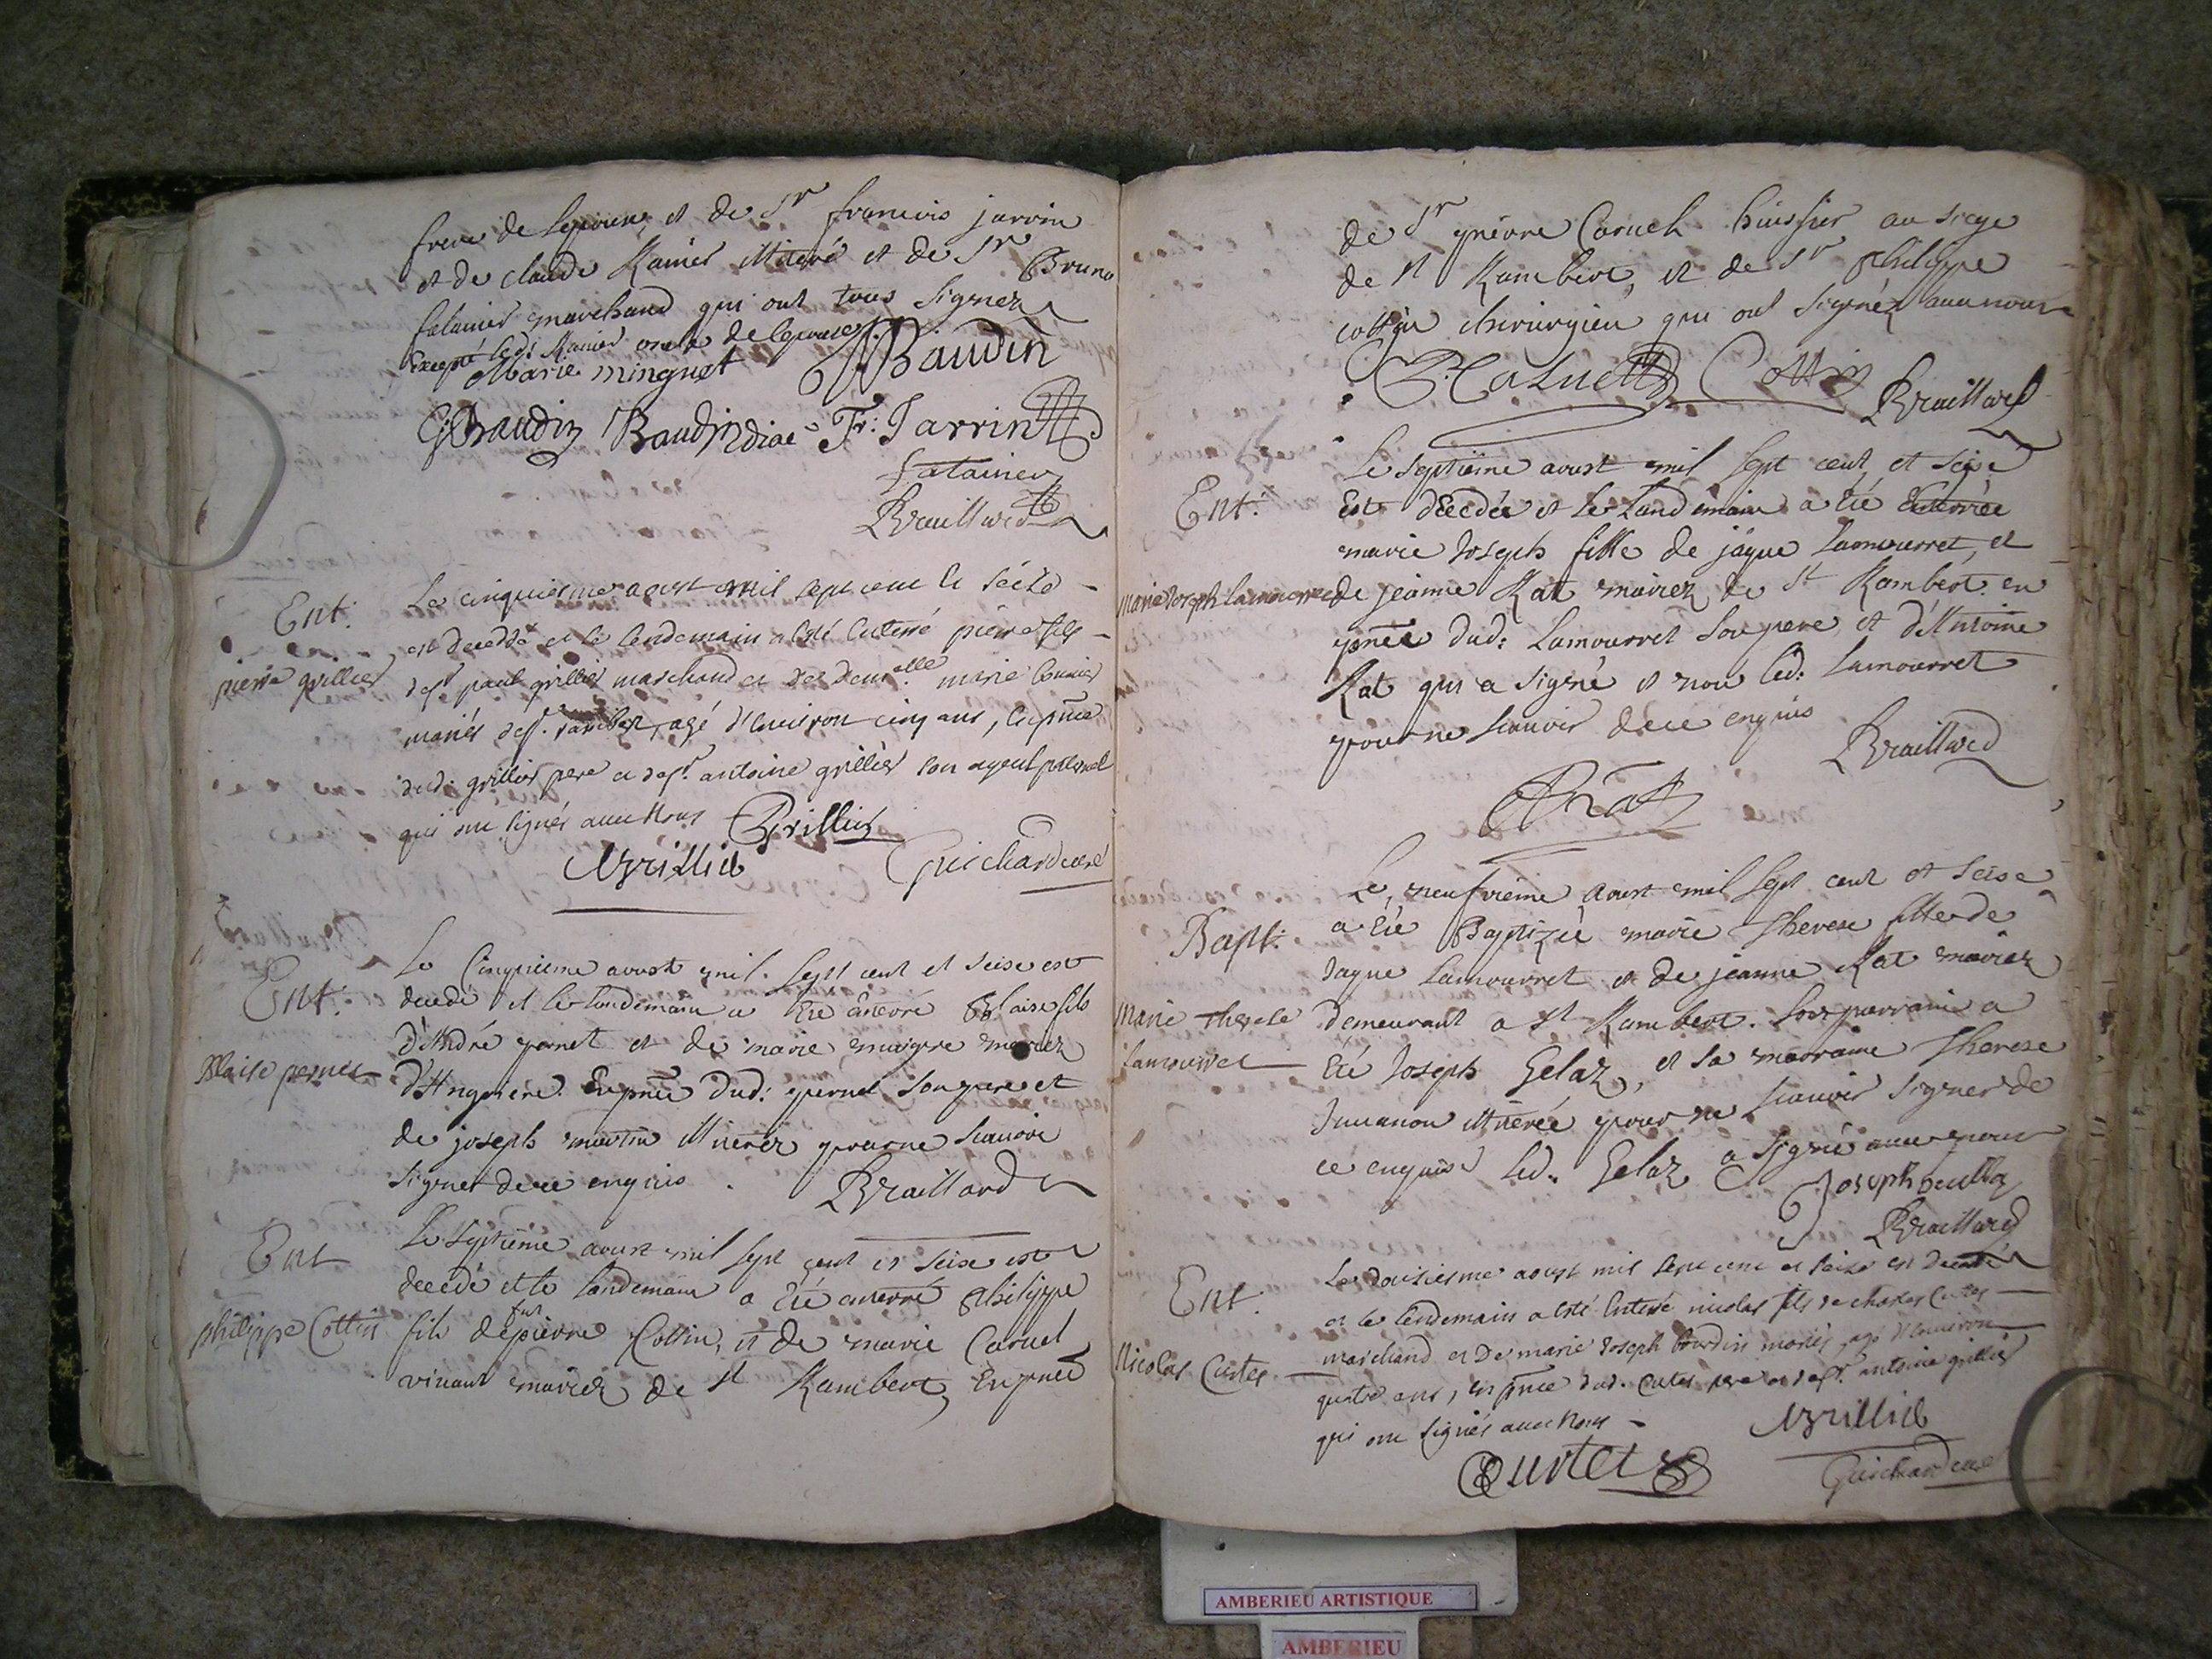 frere de lepouse, et de Sr francois jarrin
et de claude Ramier illiteré et de Sr Bruno
falamier marchand qui ont tous signez
Excepté led: Ramier oncle de lepouse
Marie minguet Baudin
Baudin Baudin Fr. Jarrin
falaimer
Braillard
Ent.
pierre grillier
Le cinquiesme aoust mil sept cent et
est decedé et le lendemain a esté enterré pierre fils
de sr paul grillier marchand et de dem.elle marie
mariés de st. rambert, agé d'environ cinq ans, en pnce
dud. grillier pere et de sr antoine grillier son ayeul paternel
qui ont signés avec nous Grillier
Grillier Guichard curé
Ent.
Blaise pernet
Le Cinquieme aoust mil sept cent et seise est
decedé et le landemain a été enterré Blaise fils
d'André pernet et de marie maigre mariez
d'Angriere. En pnce dud: pernet son pere et
de joseph martin illiterez pour ne scauoir
signer de ce enquis. Braillard
Ent
philippe Cottin
Le septieme aoust mil sept cent et seise est
decedé et le landemain a été enterré Philippe
fils de fut pierre Cottin, et de marie Caruel
vivant mariez de St Rambert, En pnce
de Sr pierre Caruel huissier au siege
de St Rambert, et de Sr Philippe
cottin chirurgien qui ont signéz avec nous
P. Caruel Cottin Braillard
Ent:
Marie Joseph Lamourret
Le septieme aoust mil sept cent et seise
Est decedée et le landemain a été Enterrée
marie Joseph fille de jaque Lamourret, et
de jeanne Rat mariez de St Rambert. en
pnce dud: Lamourret son pere et d'Antoine
Rat qui a signé et non led: Lamourret
pour ne scauoir de ce enquis
Braillard
Rat
Bapt.
Marie therese
Lamourret
Le neufvieme aoust mil sept cent et seise
a été Baptizée marie Therese fille de
Jaque Lamourret et de jeanne Rat mariez
demeurant a St Rambert. Son parrain a
été Joseph Gelaz, et sa marraine Therese
Juvanon illiterée pour ne scauoir signer de
ce enquise led. Gelaz a signé avec nous
Joseph
Braillard
Ent.
Nicolas Curtet
Le douziesme aoust mil sept cent et seize est decedé
et le lendemain a esté enterré nicolas fils de charles Curtet
marchand et de marie Joseph bourdin mariés, agé d'environ
quatre ans, en pnce dud. Curtet pere et de sr. antoine grillier
qui ont signés avec nous
Grillier
Curtet Guichard curé
AMBERIEU ARTISTIQUE
AMBERIEU